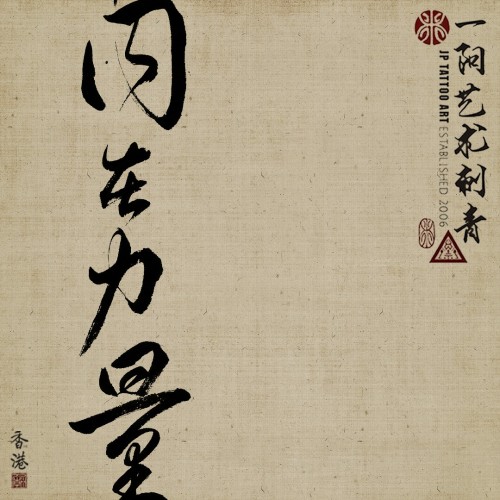 一阳艺术刺青
JP TATTOO ART ESTABLISHED 2006
内在力量
香港